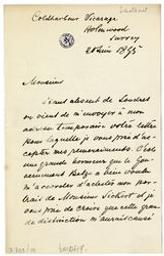 Coldharbour Vicarage
Holmwood
Surrey
28 Juin 1895
Monsieur
Étant absent de Londres
on vient de m'envoyer à mon
adresse temporaire votre lettre
pour laquelle je vous prie d'ac
cepter mes remerciements. C'est
une grande honneur que le Gou
vernement Belge a bien voulu
m'accorder d'acheter mon por
trait de Monsieur Sickert et je
vous prie de croire que cette gran
de distinction m'aurait causé